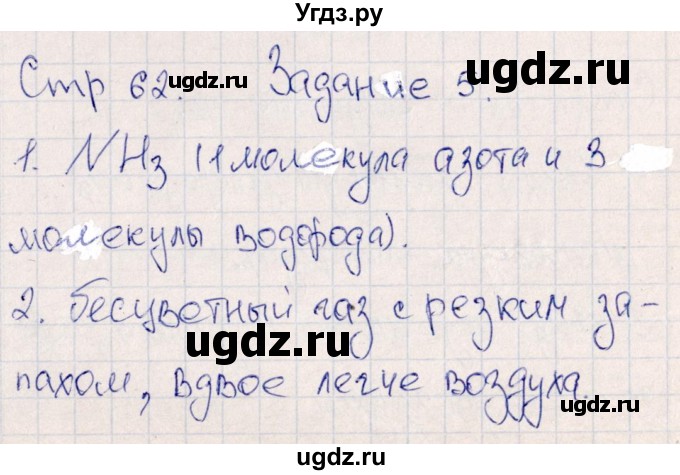 Угдз.ру
Стр 62. ugdz.ru Задание 5. ugdz.ru
1. NH3 (1 молекула азота и 3
молекулы водорода).
2. бесцветный газ с резким за-
ugdz.ru
пахом, вдвое легче воздуха.
ugdz.ru
ugdz.ru